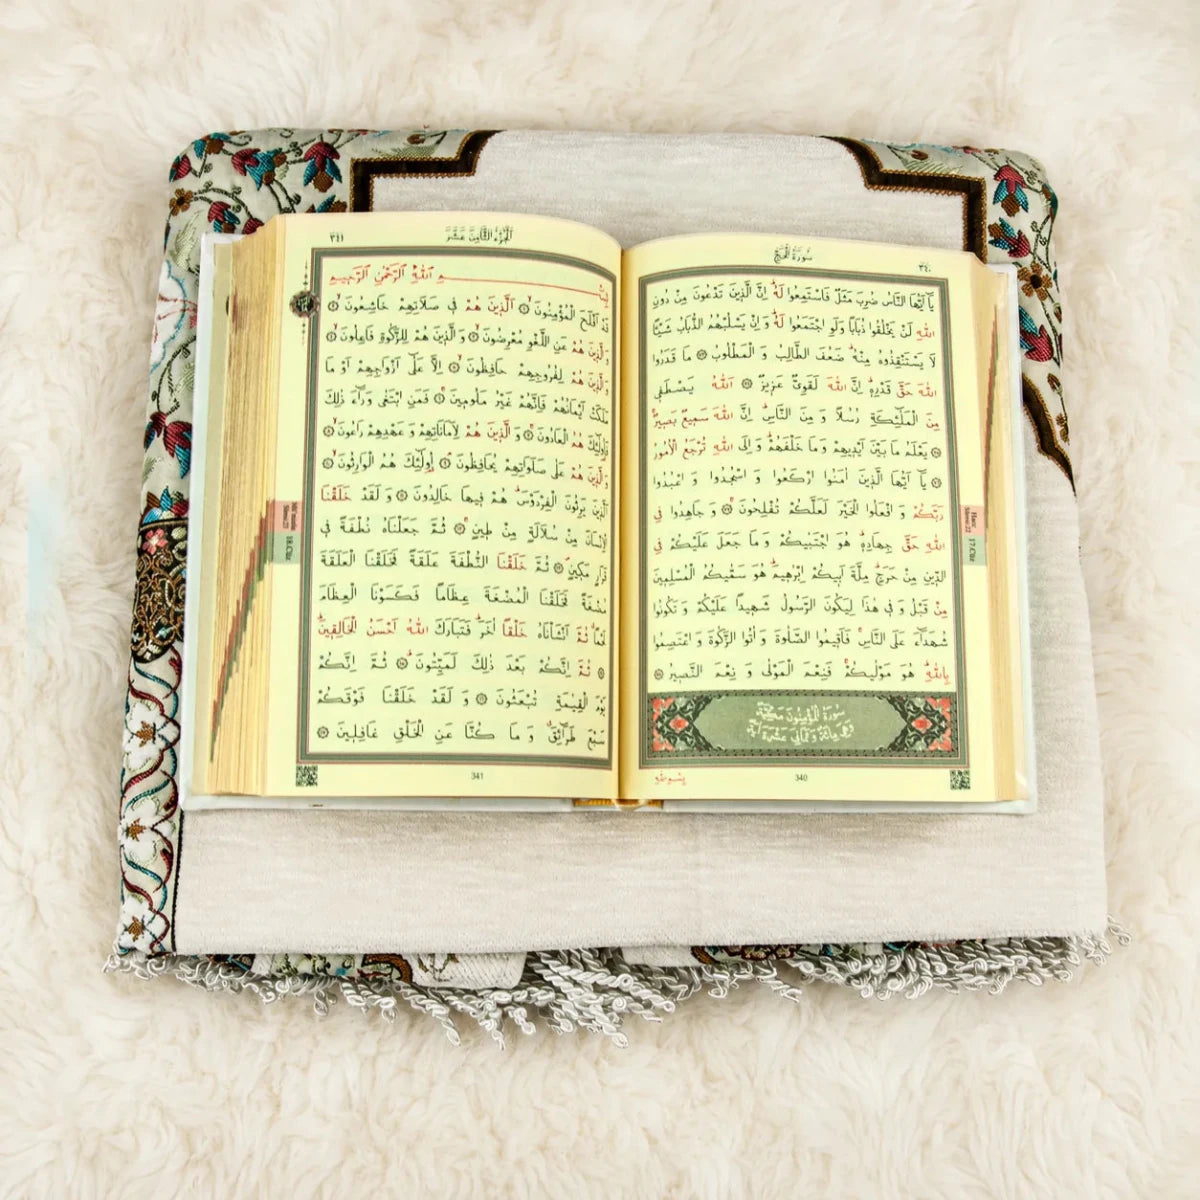 سُورَةُ الْحَجِّ
٣٤٠
يَٓا اَيُّهَا النَّاسُ ضُرِبَ مَثَلٌ فَاسْتَمِعُوا لَهُ اِنَّ الَّذِينَ تَدْعُونَ مِنْ دُونِ
اللّٰهِ لَنْ يَخْلُقُوا ذُبَابًا وَلَوِ اجْتَمَعُوا لَهُ وَ اِنْ يَسْلُبْهُمُ الذُّبَابُ شَيْئًا
لَا يَسْتَنْقِذُوهُ مِنْهُ ضَعُفَ الطَّالِبُ وَ الْمَطْلُوبُ مَا قَدَرُوا
اللّٰهَ حَقَّ قَدْرِهِ اِنَّ اللّٰهَ لَقَوِيٌّ عَزِيزٌ اَللّٰهُ يَصْطَفِي
مِنَ الْمَلٰٓئِكَةِ رُسُلًا وَ مِنَ النَّاسِ اِنَّ اللّٰهَ سَمِيعٌ بَصِيرٌ
يَعْلَمُ مَا بَيْنَ اَيْدِيهِمْ وَمَا خَلْفَهُمْ وَ اِلَى اللّٰهِ تُرْجَعُ الْاُمُورُ
يَٓا اَيُّهَا الَّذِينَ اٰمَنُوا ارْكَعُوا وَ اسْجُدُوا وَ اعْبُدُوا
رَبَّكُمْ وَ افْعَلُوا الْخَيْرَ لَعَلَّكُمْ تُفْلِحُونَ وَ جَاهِدُوا فِي
اللّٰهِ حَقَّ جِهَادِهِ هُوَ اجْتَبٰيكُمْ وَ مَا جَعَلَ عَلَيْكُمْ فِي
الدِّينِ مِنْ حَرَجٍ مِلَّةَ اَبِيكُمْ اِبْرٰهِيمَ هُوَ سَمّٰيكُمُ الْمُسْلِمِينَ
مِنْ قَبْلُ وَ فِي هٰذَا لِيَكُونَ الرَّسُولُ شَهِيدًا عَلَيْكُمْ وَ تَكُونُوا
شُهَدَٓاءَ عَلَى النَّاسِ فَاَقِيمُوا الصَّلٰوةَ وَ اٰتُوا الزَّكٰوةَ وَ اعْتَصِمُوا
بِاللّٰهِ هُوَ مَوْلٰيكُمْ فَنِعْمَ الْمَوْلٰى وَ نِعْمَ النَّصِيرُ
سُورَةُ الْمُؤْمِنُونَ مَكِّيَّةٌ
وَهِيَ مِائَةٌ وَ ثَمَانِيَ عَشْرَةَ اٰيَةً
340
Hacc
Sûresi 22
17.Cüz
اَلْجُزْءُ الثَّامِنَ عَشَرَ
٣٤١
بِسْمِ اللّٰهِ الرَّحْمٰنِ الرَّحِيمِ
قَدْ اَفْلَحَ الْمُؤْمِنُونَ اَلَّذِينَ هُمْ فِي صَلَاتِهِمْ خَاشِعُونَ
وَ الَّذِينَ هُمْ عَنِ اللَّغْوِ مُعْرِضُونَ وَ الَّذِينَ هُمْ لِلزَّكٰوةِ فَاعِلُونَ
وَ الَّذِينَ هُمْ لِفُرُوجِهِمْ حَافِظُونَ اِلَّا عَلٰٓى اَزْوَاجِهِمْ اَوْ مَا
مَلَكَتْ اَيْمَانُهُمْ فَاِنَّهُمْ غَيْرُ مَلُومِينَ فَمَنِ ابْتَغٰى وَرَٓاءَ ذٰلِكَ
فَاُولٰٓئِكَ هُمُ الْعَادُونَ وَ الَّذِينَ هُمْ لِاَمَانَاتِهِمْ وَ عَهْدِهِمْ رَاعُونَ
وَ الَّذِينَ هُمْ عَلٰى صَلَوَاتِهِمْ يُحَافِظُونَ اُولٰٓئِكَ هُمُ الْوَارِثُونَ
اَلَّذِينَ يَرِثُونَ الْفِرْدَوْسَ هُمْ فِيهَا خَالِدُونَ وَ لَقَدْ خَلَقْنَا
الْاِنْسَانَ مِنْ سُلَالَةٍ مِنْ طِينٍ ثُمَّ جَعَلْنَاهُ نُطْفَةً فِي
قَرَارٍ مَكِينٍ ثُمَّ خَلَقْنَا النُّطْفَةَ عَلَقَةً فَخَلَقْنَا الْعَلَقَةَ
مُضْغَةً فَخَلَقْنَا الْمُضْغَةَ عِظَامًا فَكَسَوْنَا الْعِظَامَ
لَحْمًا ثُمَّ اَنْشَأْنَاهُ خَلْقًا اٰخَرَ فَتَبَارَكَ اللّٰهُ اَحْسَنُ الْخَالِقِينَ
ثُمَّ اِنَّكُمْ بَعْدَ ذٰلِكَ لَمَيِّتُونَ ثُمَّ اِنَّكُمْ
يَوْمَ الْقِيٰمَةِ تُبْعَثُونَ وَ لَقَدْ خَلَقْنَا فَوْقَكُمْ
سَبْعَ طَرَٓائِقَ وَ مَا كُنَّا عَنِ الْخَلْقِ غَافِلِينَ
341
Sûresi 23
18.Cüz